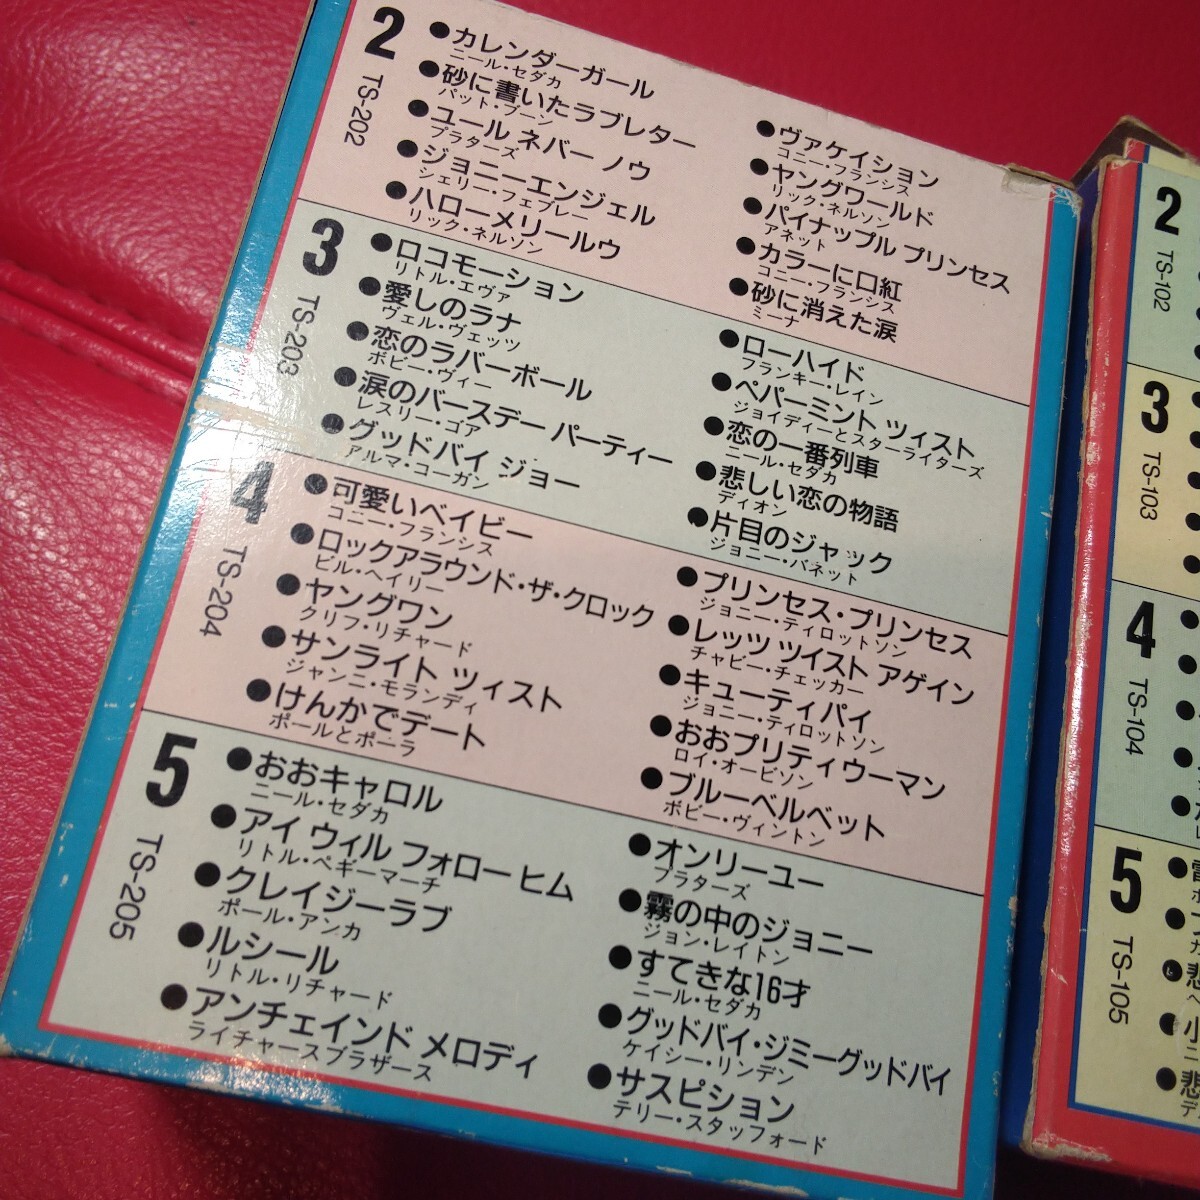 2
TS-202
●カレンダーガール
ニール・セダカ
●砂に書いたラブレター
パット・ブーン
●ユール ネバー ノウ
プラターズ
●ジョニーエンジェル
シェリー・フェブレー
●ハローメリールウ
リック・ネルソン
●ヴァケイション
コニー・フランシス
●ヤングワールド
リック・ネルソン
●パイナップル プリンセス
アネット
●カラーに口紅
コニー・フランシス
●砂に消えた涙
ミーナ
3
TS-203
●ロコモーション
リトル・エヴァ
●愛しのラナ
ヴェル・ヴェッツ
●恋のラバーボール
ボビー・ヴィー
●涙のバースデー パーティー
レスリー・ゴア
●グッドバイ ジョー
アルマ・コーガン
●ローハイド
フランキー・レイン
●ペパーミント ツィスト
ジョイディーとスターライターズ
●恋の一番列車
ニール・セダカ
●悲しい恋の物語
ディオン
●片目のジャック
ジョニー・バネット
4
TS-204
●可愛いベイビー
コニー・フランシス
●ロックアラウンド・ザ・クロック
ビル・ヘイリー
●ヤングワン
クリフ・リチャード
●サンライト ツィスト
ジャンニ・モランディ
●けんかでデート
ポールとポーラ
●プリンセス・プリンセス
ジョニー・ティロットソン
●レッツ ツイスト アゲイン
チャビー・チェッカー
●キューティパイ
ジョニー・ティロットソン
●おおプリティウーマン
ロイ・オービソン
●ブルーベルベット
ボビー・ヴィントン
5
TS-205
●おおキャロル
ニール・セダカ
●アイ ウィル フォロー ヒム
リトル・ペギーマーチ
●クレイジーラブ
ポール・アンカ
●ルシール
リトル・リチャード
●アンチェインド メロディ
ライチャースブラザース
●オンリーユー
プラターズ
●霧の中のジョニー
ジョン・レイトン
●すてきな16才
ニール・セダカ
●グッドバイ・ジミーグッドバイ
ケイシー・リンデン
●サスピション
テリー・スタッフォード
2
TS-102
3
TS-103
4
TS-104
5
TS-105